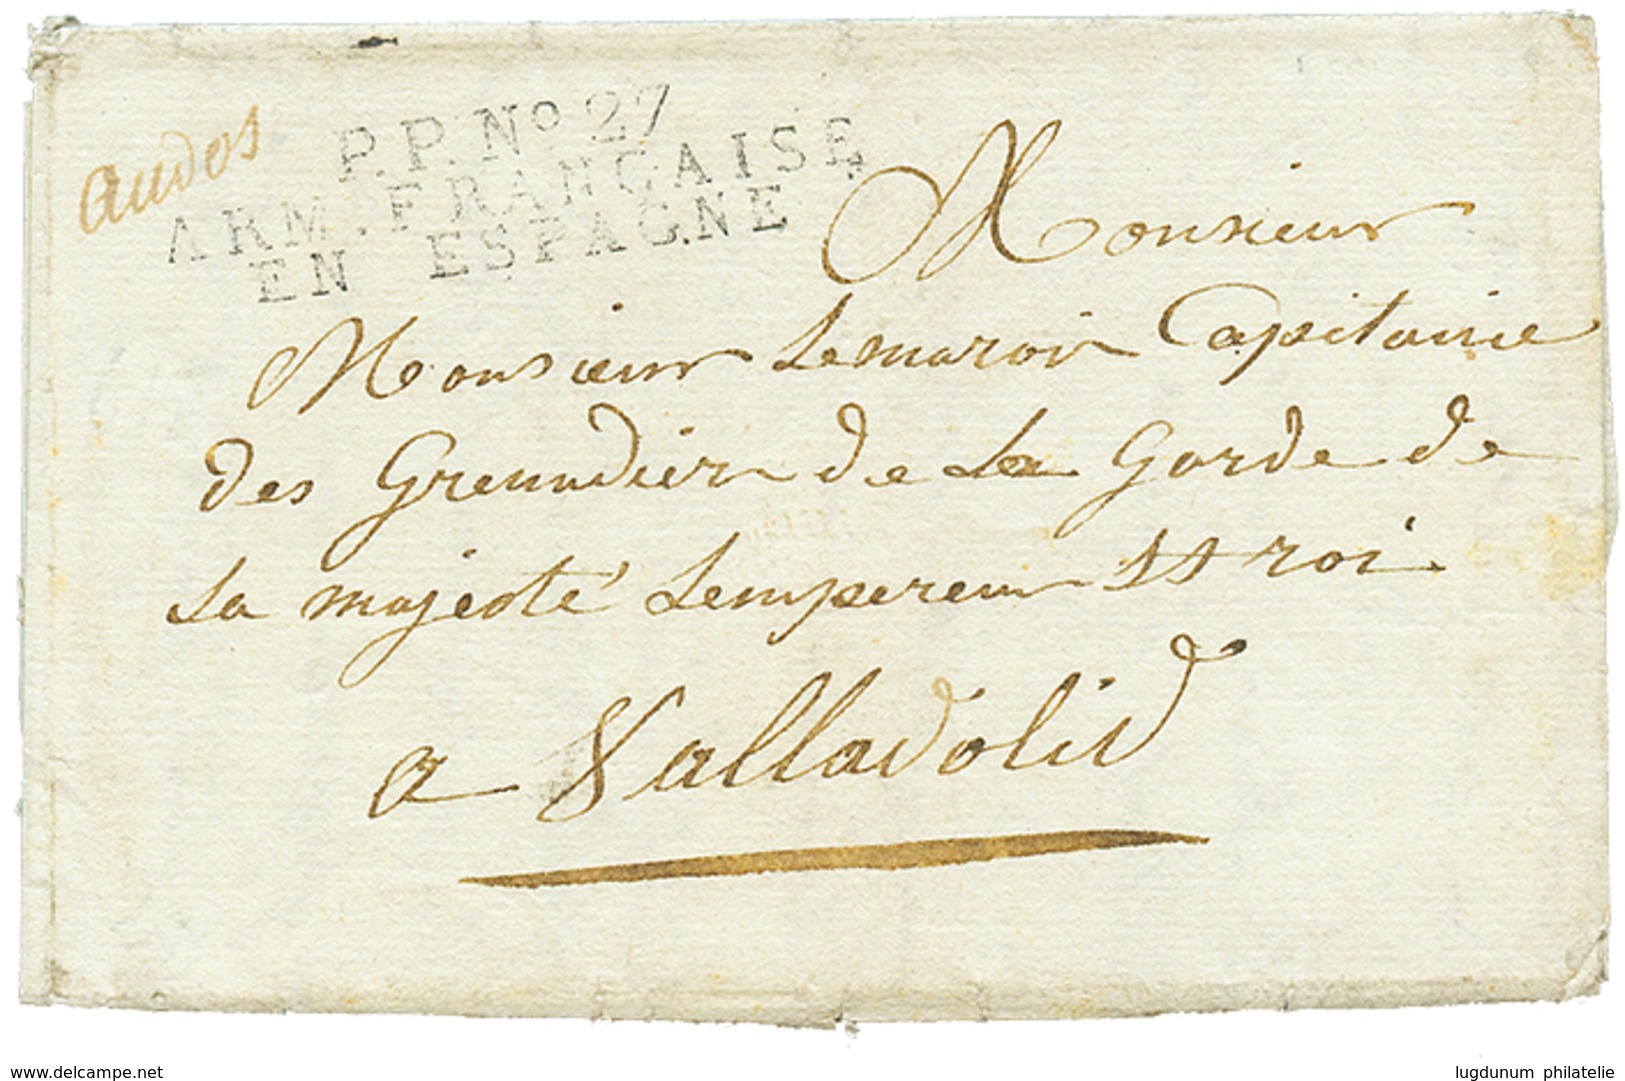 Audos
P.P.Nº 27
ARM. FRANÇAISE
EN ESPAGNE
Monsieur
Monsieur Lemaroir Capitaine
des Grenadier de La Garde de
Sa majesté Lempereur et roi
a Valladolid
www.delcampe.net
lugdunum philatelie